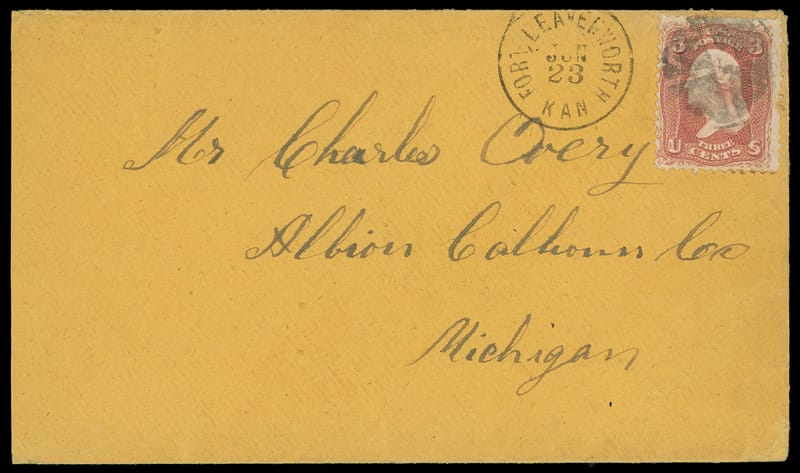 FORT LEAVENWORTH
JUN
23
KAN
3 U.S. 3
POSTAGE
THREE
U CENTS S
Mr Charles Overy
Albion Calhoun Co
Michigan